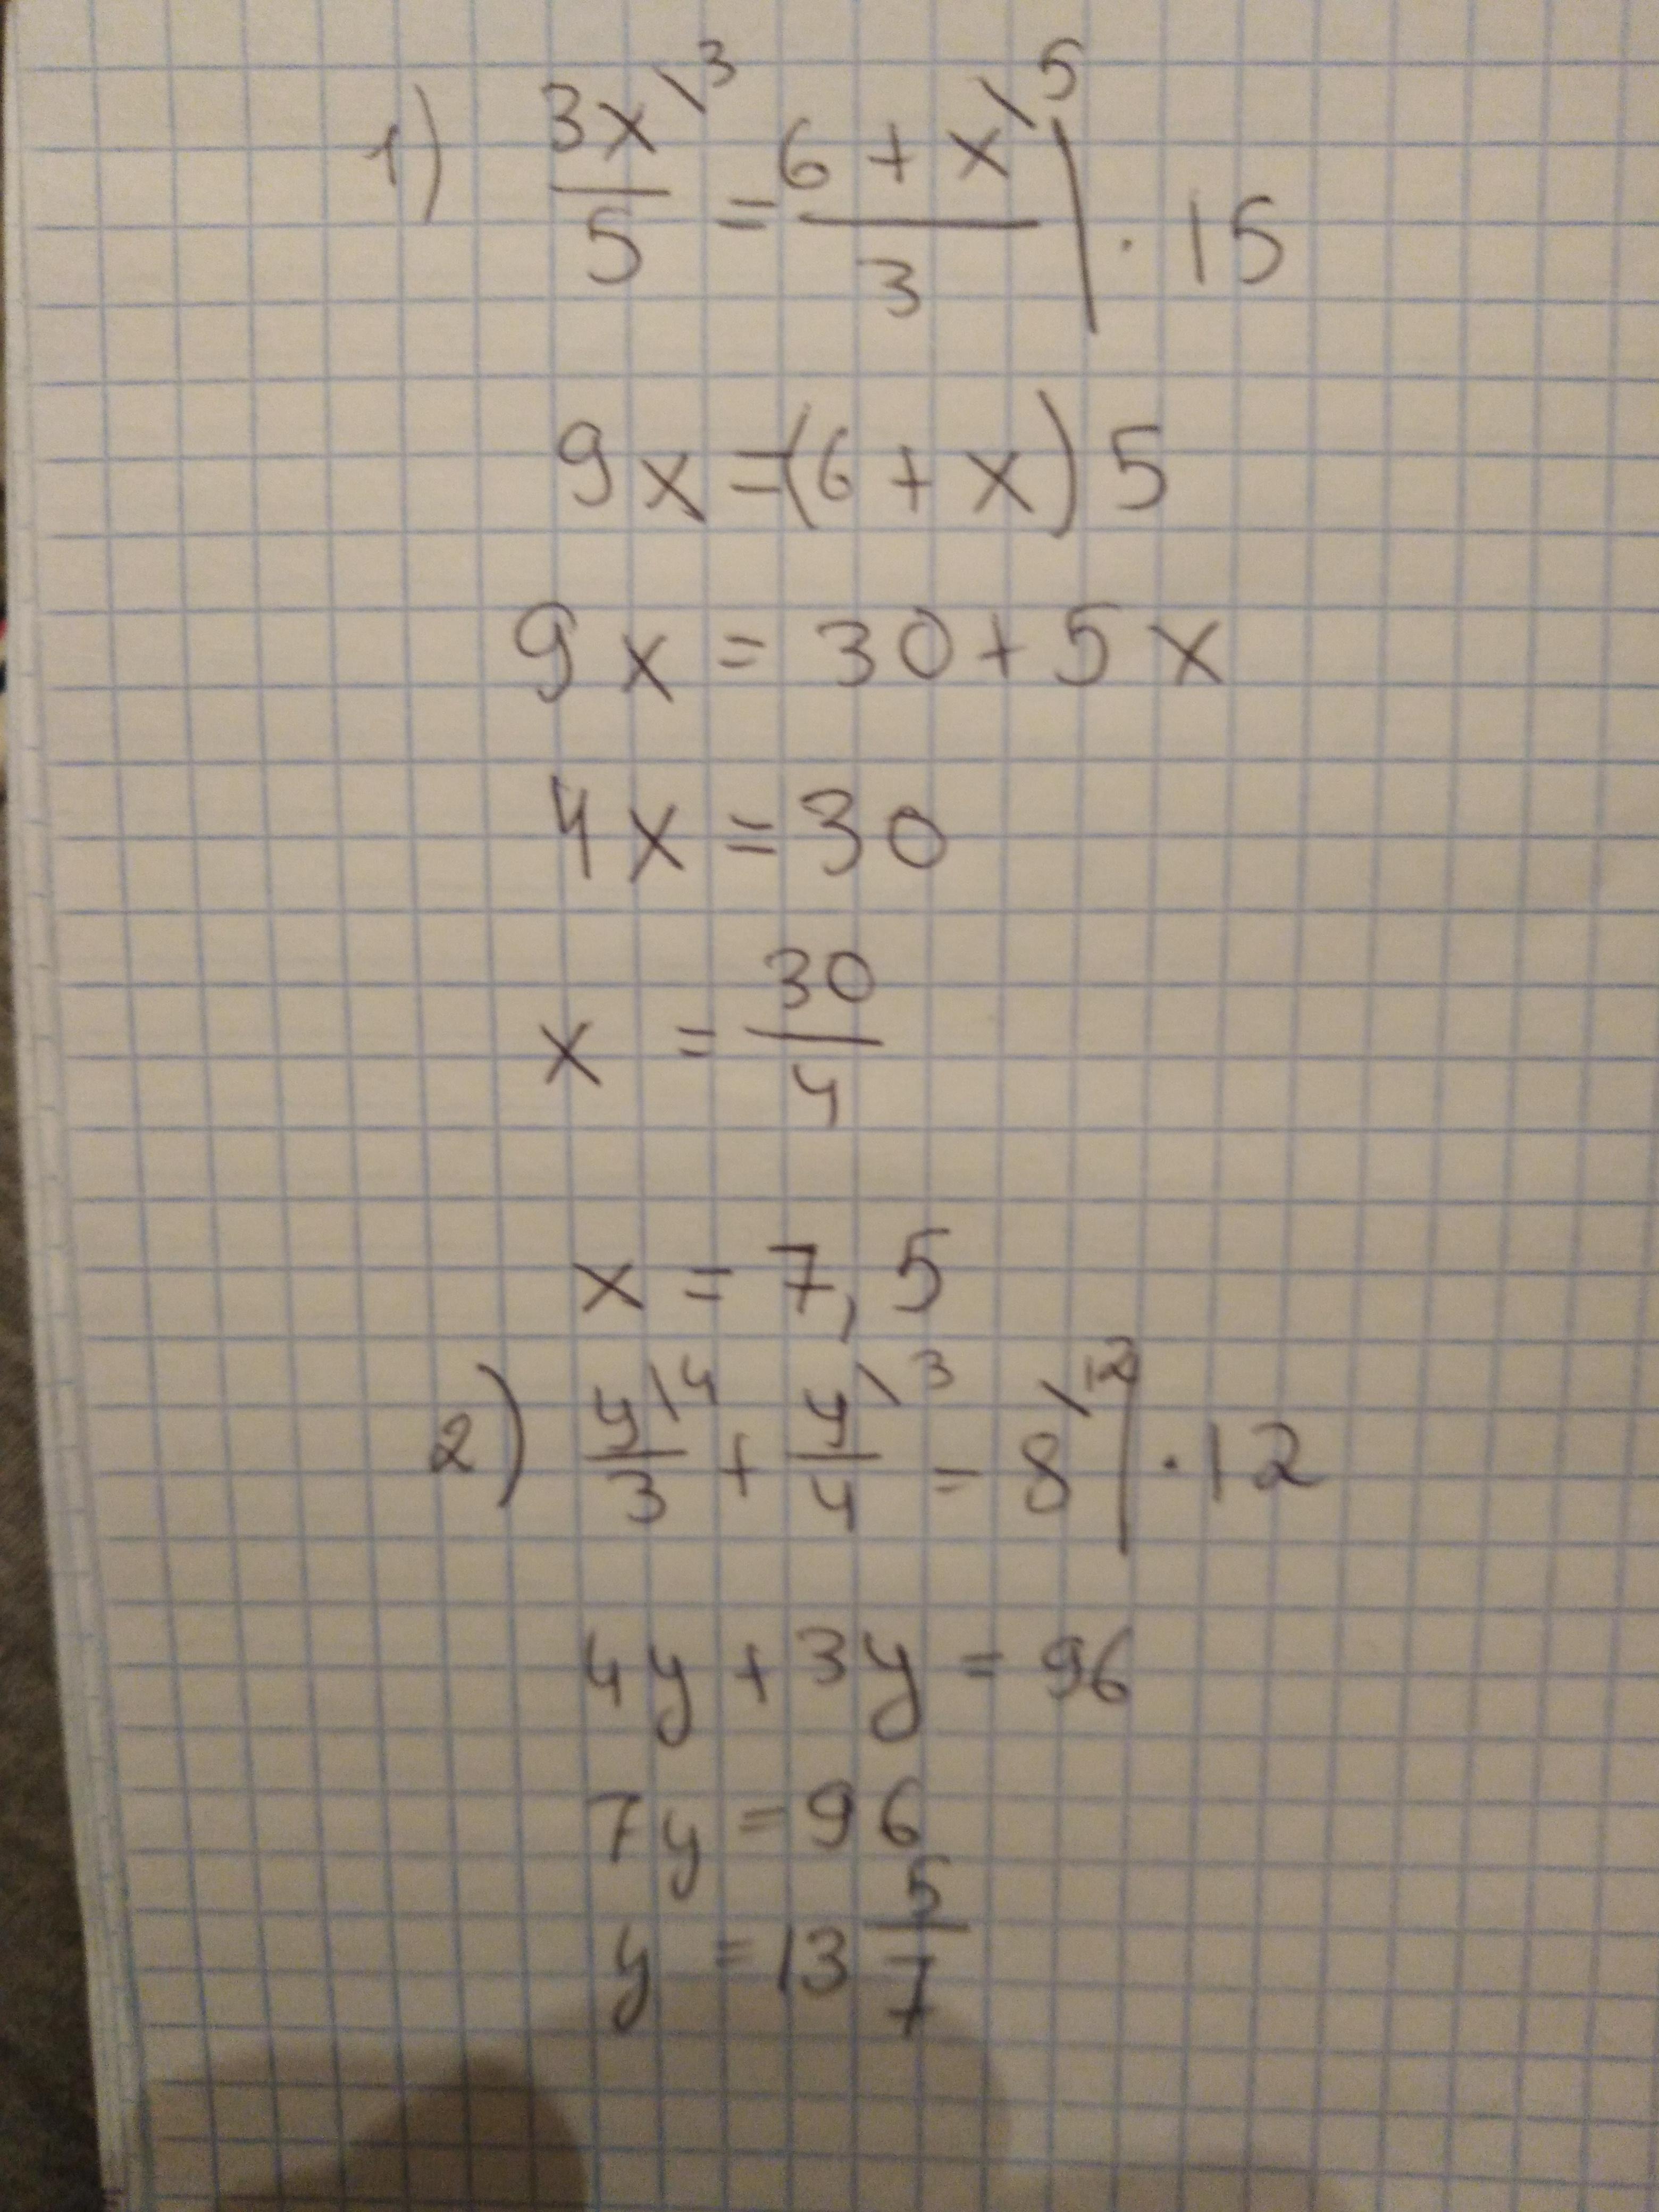 1) 3x\3/5 = 6+x\5/3 | · 15
9x = (6 + x) 5
9x = 30 + 5x
4x = 30
x = 30/4
x = 7,5
2) y\4/3 + y\3/4 = 8\12 | · 12
4y + 3y = 96
7y = 96
y = 13 5/7